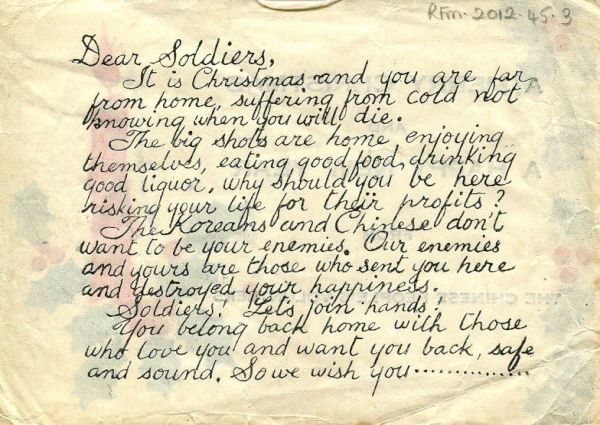 RFM·2012·45·3
Dear Soldiers,
It is Christmas and you are far
from home, suffering from cold not
knowing when you will die.
The big shots are home enjoying
themselves, eating good food, drinking
good liquor, why should you be here
risking your life for their profits?
The Koreans and Chinese don't
want to be your enemies. Our enemies
and yours are those who sent you here
and destroyed your happiness.
Soldiers! Let's join hands!
You belong back home with those
who love you and want you back, safe
and sound. So we wish you..............
THE CHINESE PEOPLE'S